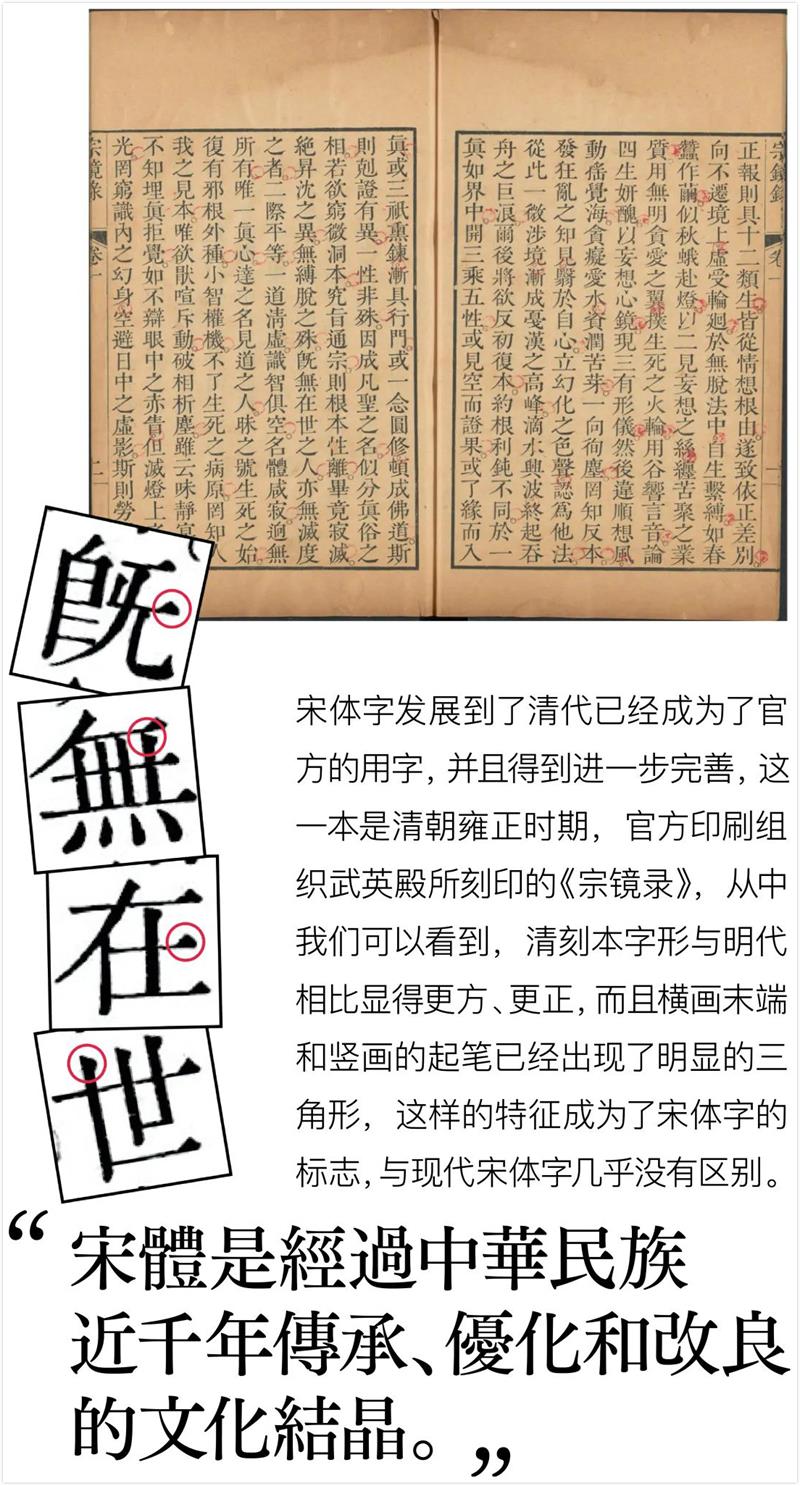 宗鏡錄 卷一
正報則具十二類生皆從情想根由遂致依正差別
向不遷境上虛受輪廻於無脫法中自生繫縛如春
蠶作繭似秋蛾赴燈以二見妄想之絲纏苦聚之業
質用無明貪愛之翼撲生死之火輪用谷響言音論
四生妍醜以妄想心鏡現三有形儀然後違順想風
動搖覺海貪癡愛水資潤苦芽一向徇塵罔知反本
發狂亂之知見翳於自心立幻化之色聲認為他法
從此一微涉境漸成戞漢之高峰滴水興波終起吞
舟之巨浪爾後將欲反初復本約根利鈍不同於一
眞如界中開三乘五性或見空而證果或了緣而入
眞或三祇熏鍊漸具行門或一念圓修頓成佛道斯
則剋證有異一性非殊因成凡聖之名似分眞俗之
相若欲窮微洞本究旨通宗則根本性離畢竟寂滅
絕昇沈之異無縛脫之殊旣無在世之人亦無滅度
之者二際平等一道清虛識智俱空名體咸寂迥無
所有唯一眞心達之名見道之人昧之號生死之始
復有邪根外種小智權機不了生死之病原罔知人
我之見本唯欲猒喧斥動破相析塵雖云味靜冥
不知埋眞拒覺如不辯眼中之赤眚但滅燈上
光罔窮識內之幻身空避日中之虛影斯則勞
宗鏡錄 卷一 二
旣
無
在
世
宋体字发展到了清代已经成为了官
方的用字，并且得到进一步完善，这
一本是清朝雍正时期，官方印刷组
织武英殿所刻印的《宗镜录》，从中
我们可以看到，清刻本字形与明代
相比显得更方、更正，而且横画末端
和竖画的起笔已经出现了明显的三
角形，这样的特征成为了宋体字的
标志，与现代宋体字几乎没有区别。
“宋體是經過中華民族
近千年傳承、優化和改良
的文化結晶。”